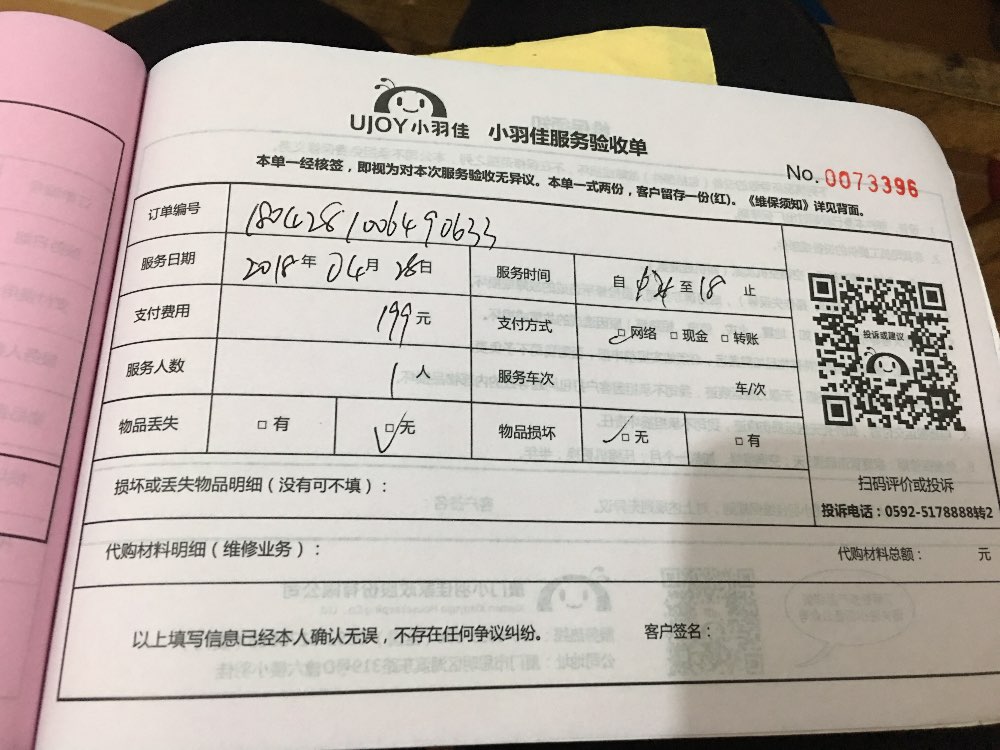 UJOY小羽佳 小羽佳服务验收单
No.0073396
本单一经核签，即视为对本次服务验收无异议。本单一式两份，客户留存一份(红)。《维保须知》详见背面。
订单编号 1804281006490633
服务日期 2018年04月28日 服务时间 自 至18止
支付费用 199元 支付方式 □网络 □现金 □转账
服务人数 1人 服务车次 车/次
物品丢失 □有 □无 物品损坏 □无 □有
投诉或建议
扫码评价或投诉
投诉电话：0592-5178888转2
损坏或丢失物品明细（没有可不填）：
代购材料明细（维修业务）： 代购材料总额： 元
以上填写信息已经本人确认无误，不存在任何争议纠纷。 客户签名：